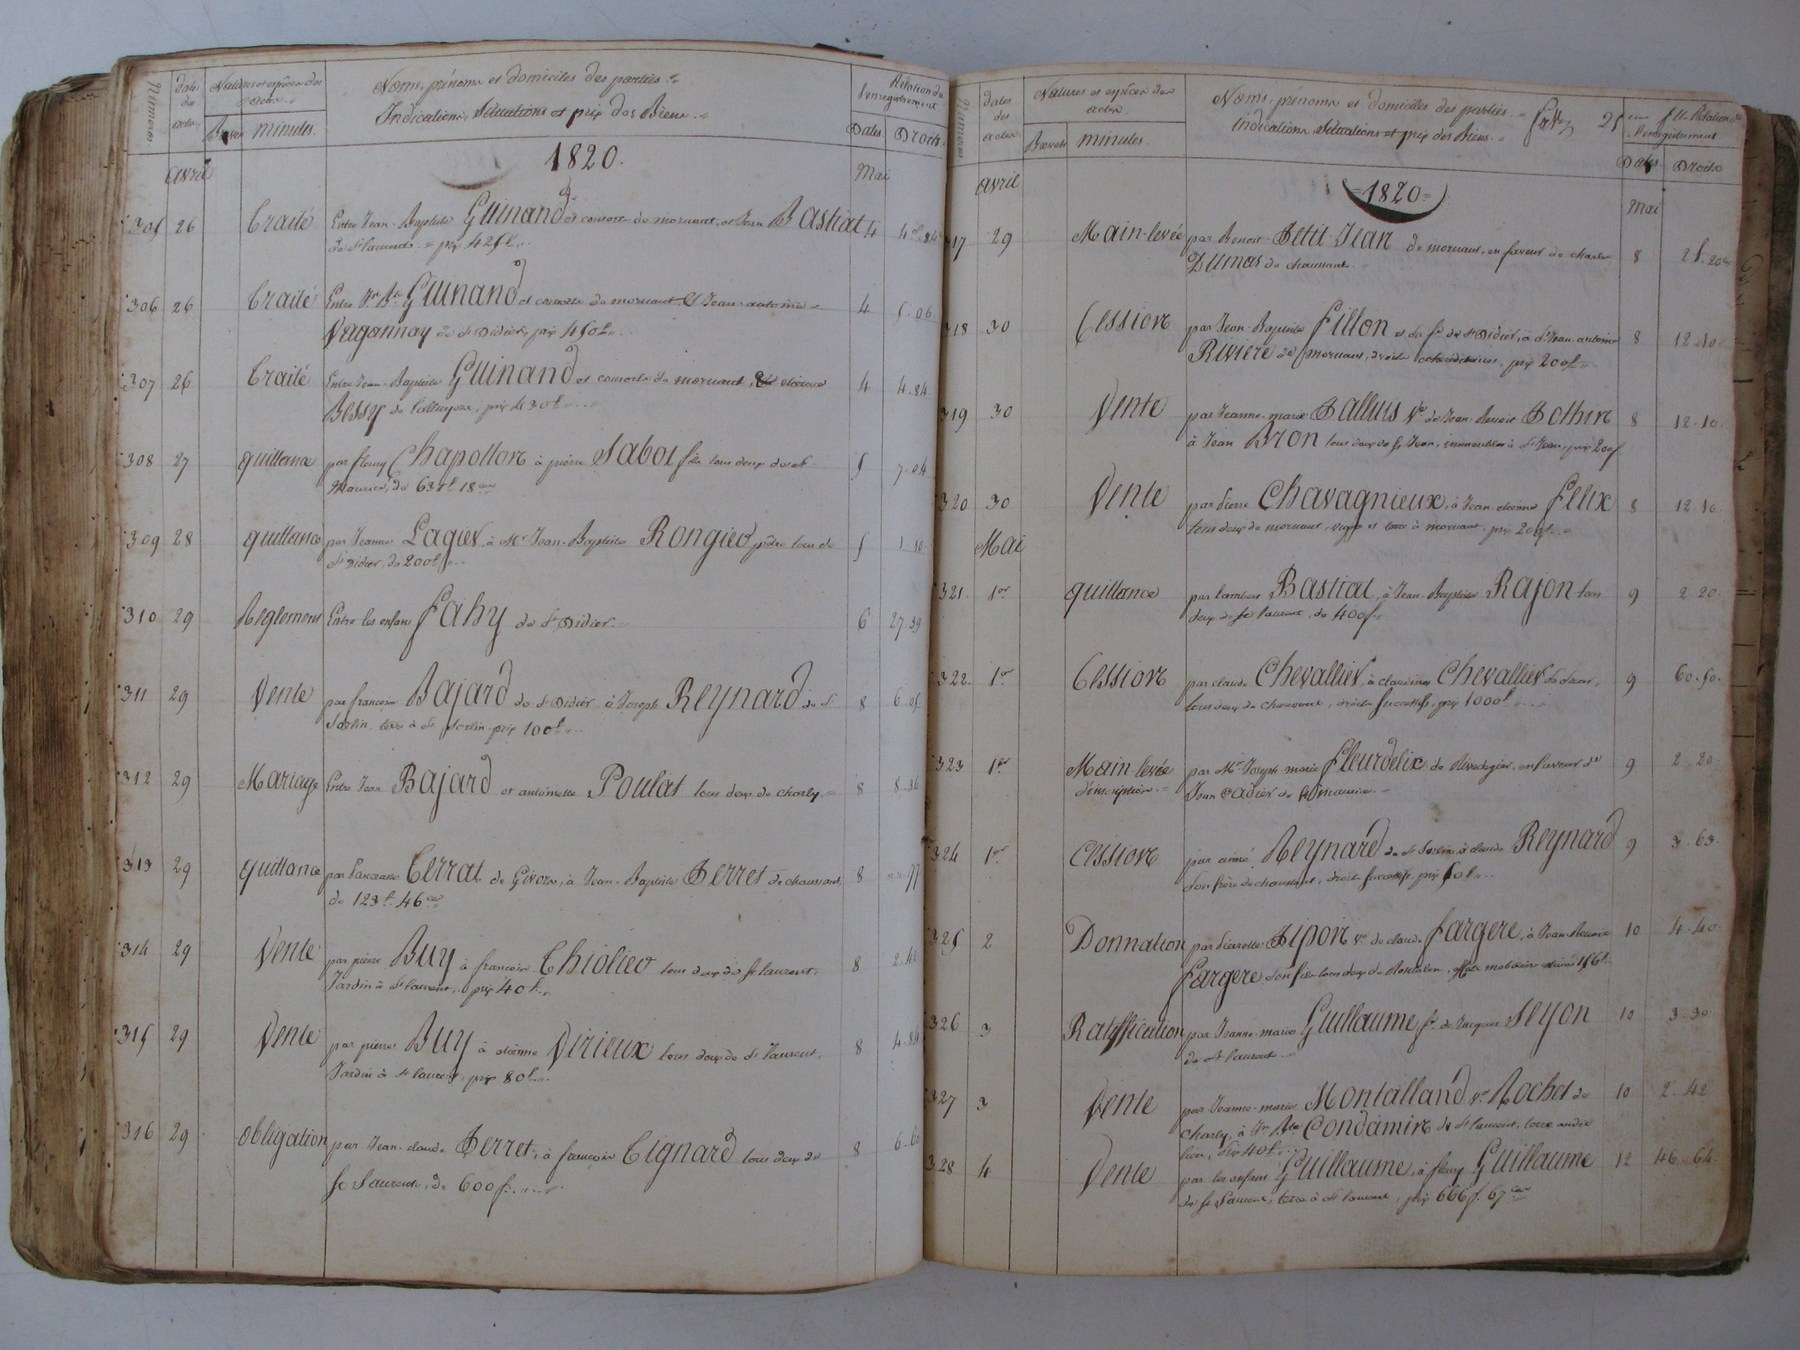 Numéros
Dates des actes
Natures et espèces des actes
Brevets minutes.
Noms, prénoms et domiciles des parties.
Indications, Situations et prix des Biens.
Relation de l'enregistrement
Dates Droits
1820.
avril
Mai
305 26 Traité Entre Jean-Baptiste Guinand et consorts de mornant, et Jean Bastiat 4
de St laurent. prix 425f
306 26 Traité Entre Jn Bte Guinand et consorts de mornant et Jean-antoine 4 5.06
Vagannay de St Didier, prix 450f
307 26 Traité Entre Jean-Baptiste Guinand et consorts de mornant, et 4 4.84
Bessy de prix 430f
308 27 quittance par fleury Chapotton à pierre Sabot fils tous deux de St 5 7.04
Maurice, de 18
309 28 quittance par Jeanne Lagier à Mr Jean-Baptiste Rongier prêtre tous de 5 1.10
St Didier, de 200f
310 29 Reglement Entre les enfans Fahy de St Didier. 6 27.39
311 29 Vente par francois Bajard de St Didier à Joseph Reynard de St 8
Sorlin, terre à St Sorlin prix 100f
312 29 Mariage Entre Jean Bajard et antoinette Poulat tous deux de charly 8
313 29 quittance par Terrat de Givors, à Jean-Baptiste Perret de chaussant, 8
de 123f 46c
314 29 Vente par pierre Buy à francois Thiolier tous deux de St laurent, 8 2.42
Jardin à St laurent, prix 40f
315 29 Vente par pierre Buy à etienne Virieux tous deux de St laurent, 8 4.84
Jardin à St laurent, prix 80f
316 29 obligation par Jean-claude Perret, à francois Tignard tous deux de 8 6.60
St Laurent, de 600f
Numéros
dates des actes
Natures et espèces des actes
Brevets minutes.
Noms, prénoms et domiciles des parties.
Indications Situations et prix des Biens.
25
Relation de l'enregistrement
Dates Droits
1820
avril
Mai
317 29 Main-levée par Benoit Petit-Jean de mornant, en faveur de charles 8
Dumas de chaussant.
318 30 Cession par Jean-Baptiste Fillon et sa fe de St Didier, à St Jean-antoine 8 12.10
Riviere de mornant, droits prix 200f
319 30 Vente par Jeanne-marie Palluis Ve de Jean-Benoit Pothin 8 12.10
à Jean Bron tous deux de St Jean, immeubles à St Jean, prix 200f
320 30 Vente par pierre Chavagnieux, à Jean-etienne Felix 8 12.10
tous deux de mornant, vigne et terre à mornant, prix 200f
Mai
321 1er quittance par Bastiat, à Jean-Baptiste Rajon tous 9 2.20
deux de St laurent, de 400f
322 1er Cession par claude Chevallier, à claudine Chevallier sa soeur, 9 60.50
tous deux de droits successifs, prix 1000f
323 1er Main levée par Mr Joseph-marie Fleurdelix de en faveur de 9 2.20
d'inscription. Jean Cadier de St maurice.
324 1er Cession par aimé Reynard de St Sorlin, à claude Reynard 9 3.63
son frère de chaussant, droits successifs, prix 50f
325 2 Donnation par pierrette Pipon Ve de claude Fargere, à Jean 10 4.40
Fargere son fils tous deux de Rontalon,
326 3 Ratiffication par Jeanne-marie Guillaume fe de Jacques Seyon 10 3.30
de St laurent
327 3 Vente par Jeanne-marie Montalland Ve Rochet de 10 2.42
charly, à Jn Bte Condamin de St laurent, terre audit
lieu, prix 40f
328 4 Vente par les enfans Guillaume, à fleury Guillaume 12 46.64
de St Laurent, terre à St laurent, prix 666f. 67c